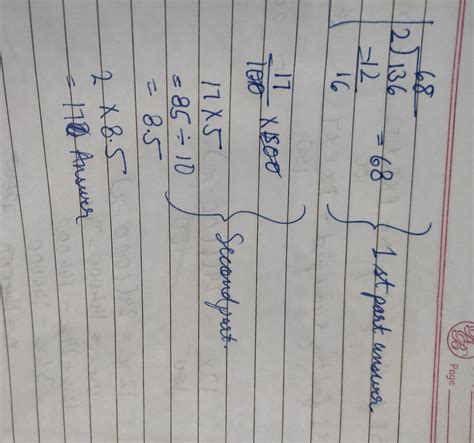 Page
68
2)136 = 68
-12
16
1st part answer
17
100 × 500
17 × 5
= 85 ÷ 10
= 8.5
Second part.
2 × 8.5
= 17 Answer